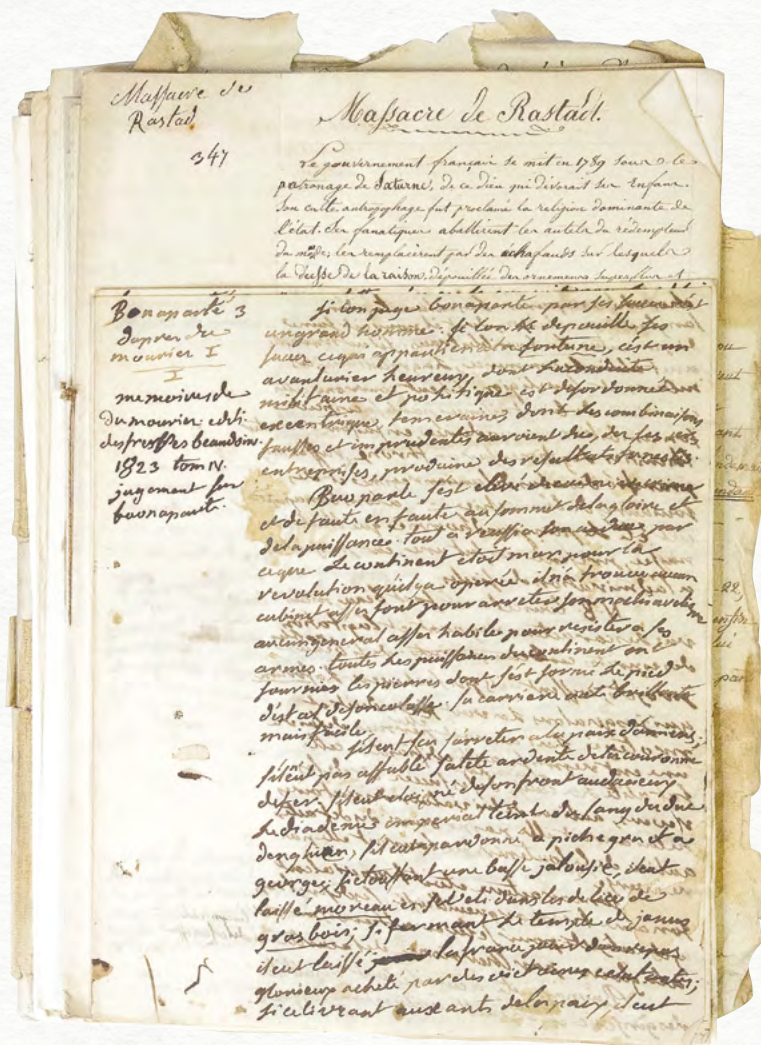 Massacre de
Rastad
347
Massacre de Rastadt.
Le gouvernement français se mit en 1789 sous le
patronage de Saturne, de ce dieu qui dévorait ses Enfans.
Son culte antropophage fut proclamé la religion dominante de
l'état. Ses fanatiques abattirent les autels du rédempteur
du monde; les remplacèrent par des échafauds sur lesquels
la déesse de la raison, dépouillée des ornemens superflus et
Bonaparte 3
dumourier I
I
memoires de
dumourier edit.
des freres beaudoin.
1823 tom IV.
jugement sur
buonaparte.
Si lon juge bonaparte par ses succes c'est
un grand homme. Si lon le depouille ses
succes ce qui appartient a la fortune, c'est un
avanturier heureux, dont la conduite
militaire et politique est desordonnée
excentrique, temeraire, dont les combinaisons
fausses et imprudentes auroient due, des ses
entreprises, produire des resultats funestes.
Buonparte s'est elevé de crime en crime
et de faute en faute au sommet de la gloire et
de la puissance. tout a reussi a son audace par
ce que le continent etoit mur pour la
revolution qu'il y a operée. il n'a trouvé aucun
cabinet assez fort pour arreter son machiavelisme
aucun general assez habile pour resister a ses
armes. toutes les puissances du continent ont
fourni les pierres dont s'est formé le pied
d'estal de son colosse. sa carriere a été brillante
mais facile
S'il eut su s'arreter a la paix d'amiens;
s'il n'eut pas affublé sa tete ardente de la couronne
de fer. s'il eut eloigné de son front audacieux
le diademe imperial teint du sang du duc
denghien, s'il eut pardonné a pichegru et a
george; si etouffant une basse jalousie, il eut
laissé moreau dans les delices de
gros bois; si fermant le temple de janus
il eut laissé la france jouir d'un repos
glorieux acheté par des victoires
si se livrant aux arts de la paix, il eut